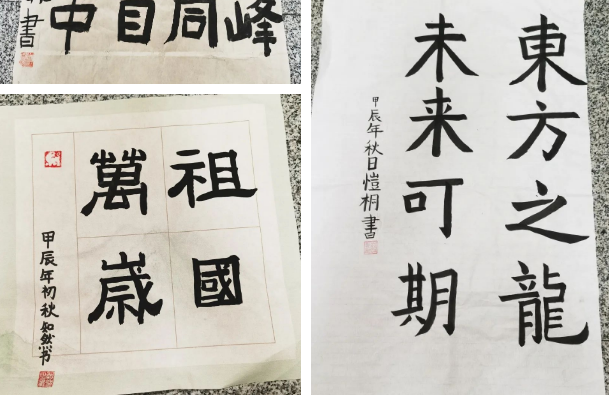 峰
同
目
中
書
祖國
萬歲
甲辰年初秋知然书
東方之龍
未来可期
甲辰年秋日愷桐書